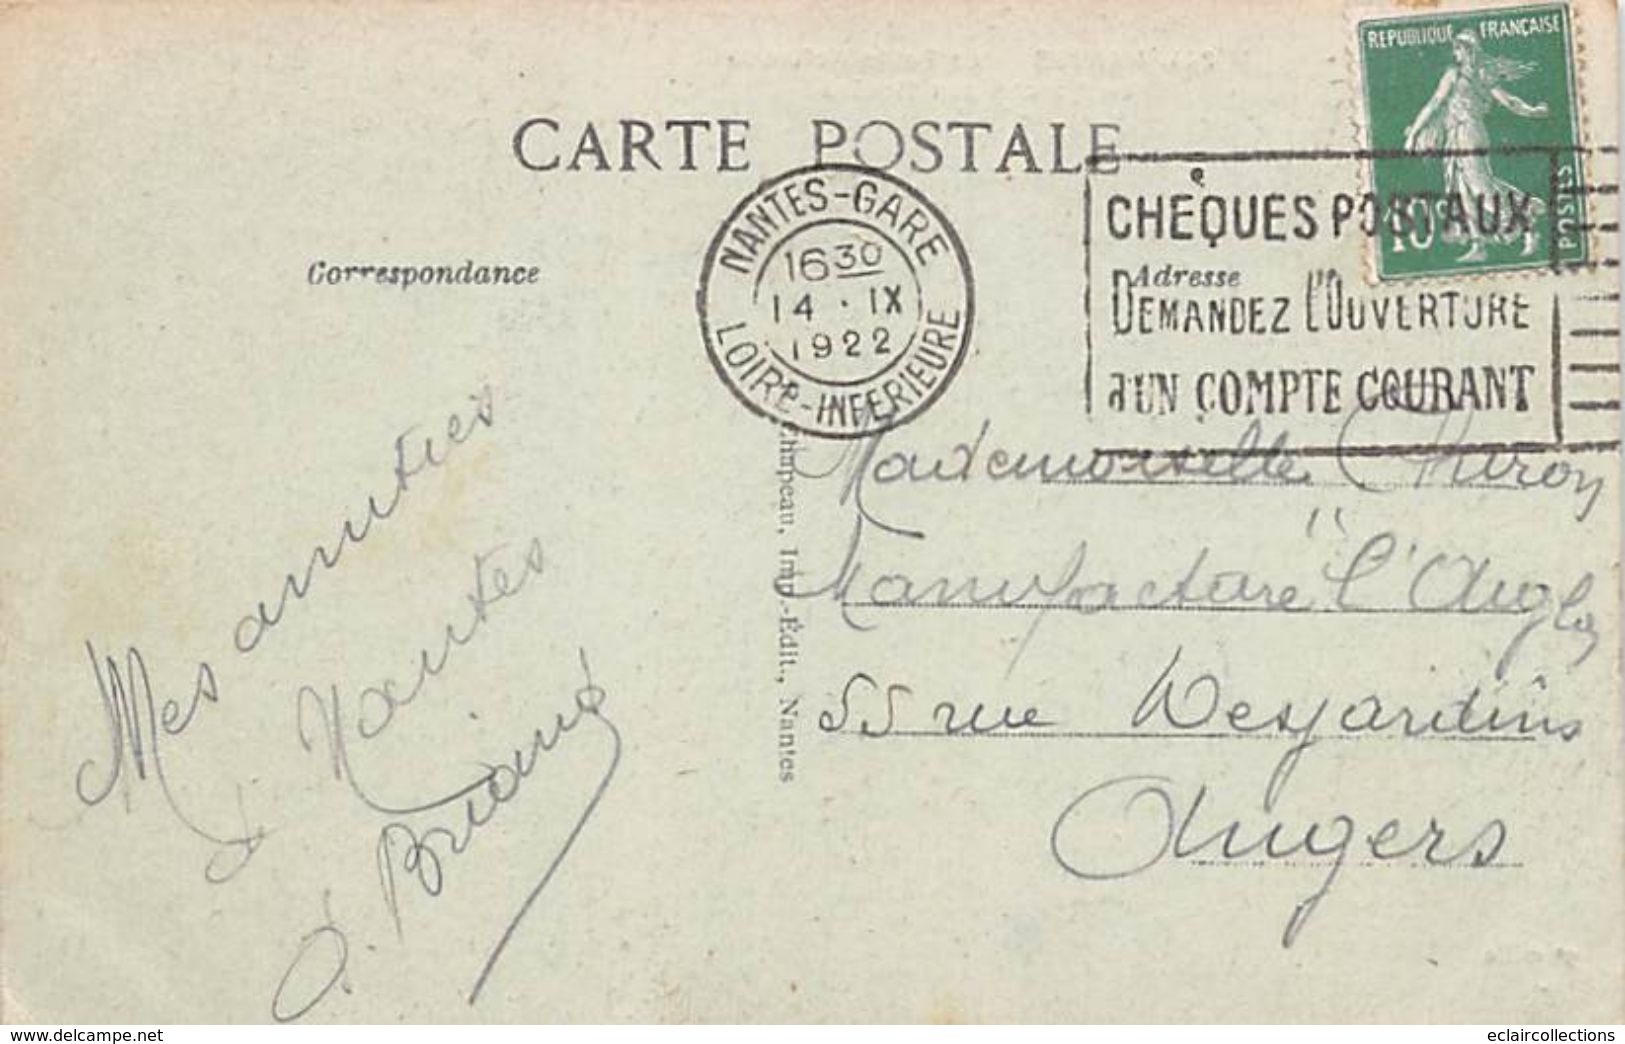 CARTE POSTALE
REPUBLIQUE FRANÇAISE
10c
POSTES
NANTES-GARE
16 30
14 · IX
1922
LOIRE-INFERIEURE
CHÈQUES POSTAUX
DEMANDEZ L'OUVERTURE
d'UN COMPTE COURANT
Correspondance
Adresse
Mes amitiés
d Nantes
O. Briand
Chapeau, Imp.-Édit., Nantes
Mademoiselle
Manufacture "l'Aigle
55 rue Desjardins
Angers
www.delcampe.net
eclaircollections